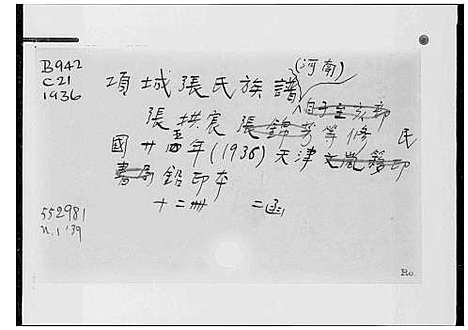 B942
C21
1936
(河南)
項城張氏族譜
自子至亥部
張拱宸 張錦芳等修 民
國廿五年(1936)天津文嵐簃印
書局鉛印本
十二冊 二函
552981
n.1 '39